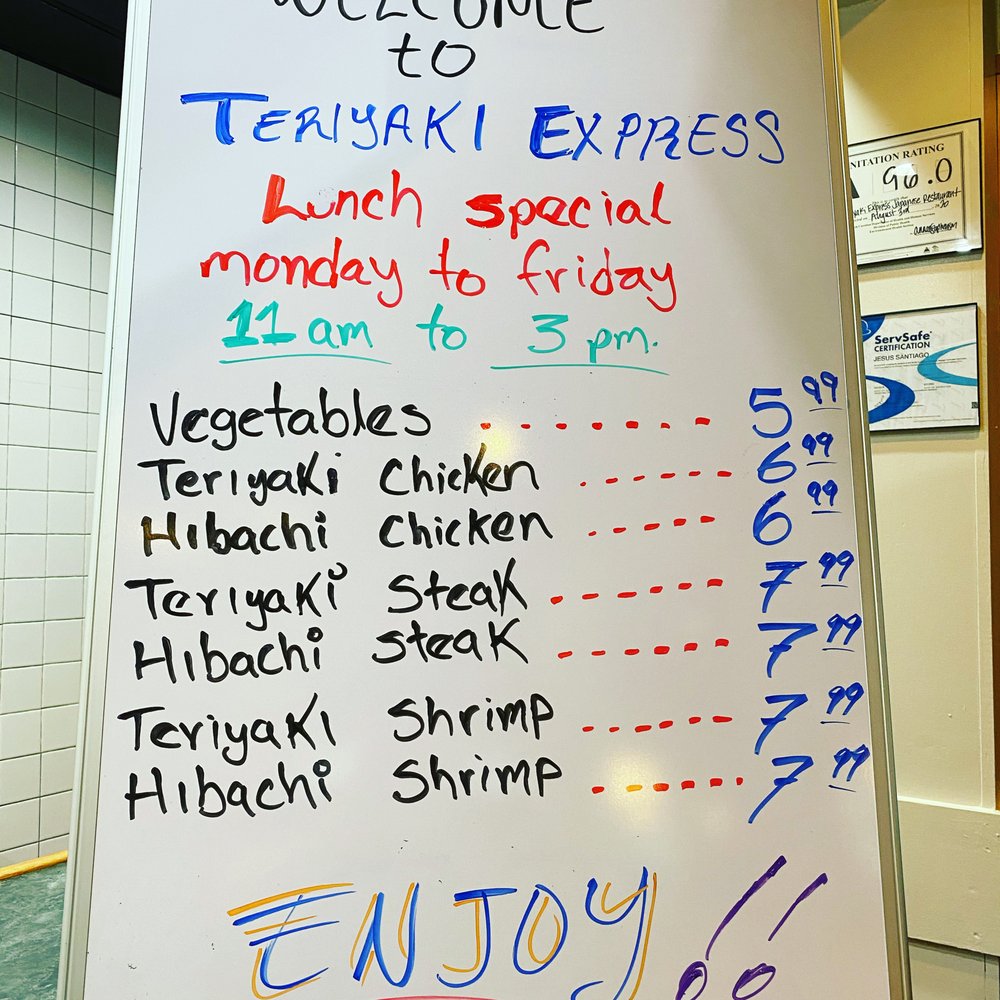 WELCOME
to
TERIYAKI EXPRESS
Lunch special
monday to friday
11 am to 3 pm.
Vegetables ....... 5 99
Teriyaki chicken ...... 6 99
Hibachi chicken ..... 6 99
Teriyaki steak ...... 7 99
Hibachi steak ...... 7 99
Teriyaki shrimp ...... 7 99
Hibachi shrimp ...... 7 99
ENJOY!!
NITATION RATING
A 96.0
yaki Express Japanese Restaurant
August 3rd 20
ServSafe®
CERTIFICATION
JESUS SANTIAGO